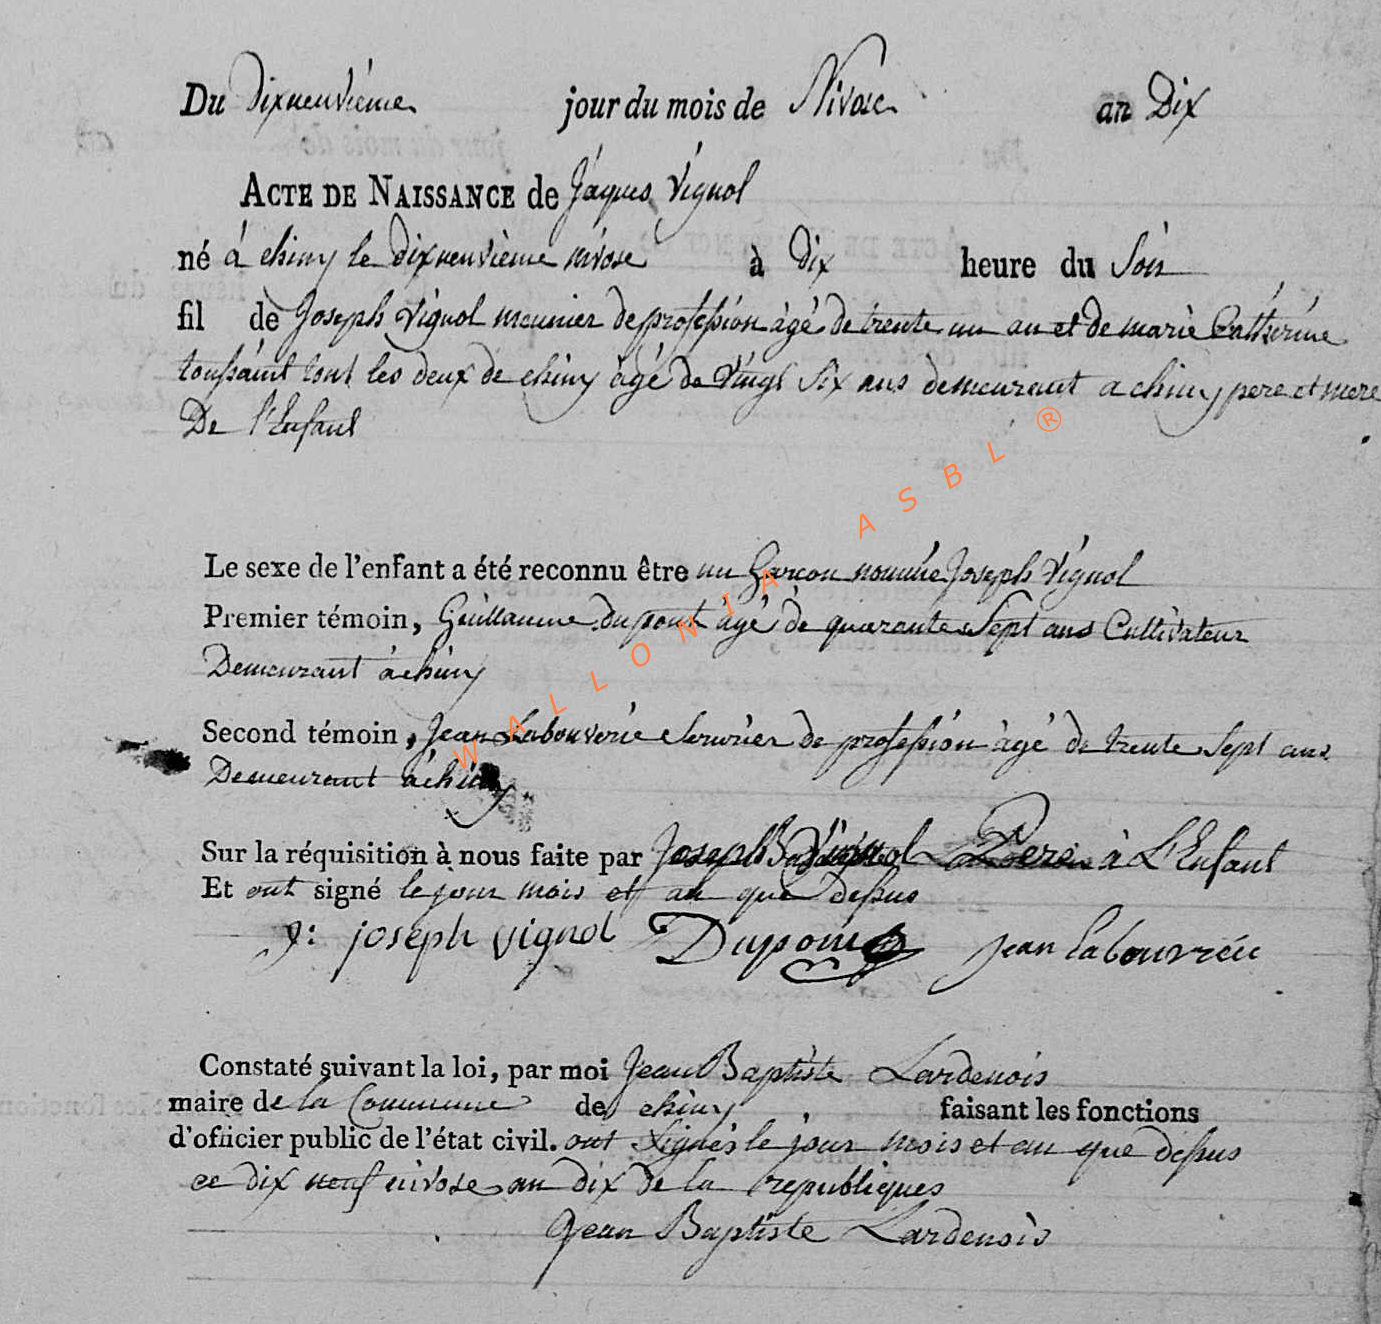 Du Dixneuvième jour du mois de Nivose an Dix
ACTE DE NAISSANCE de Jaques Vignol
né à chiny le dixneuvième nivose à Dix heure du Soir
fil de Joseph Vignol meunier de profession âgé de trente un an et de marie Catherine
toussaint tout les deux de chiny âgé de Vingt Six ans demeurant a chiny pere et mere
De l'Enfant
Le sexe de l'enfant a été reconnu être un Garcon nommée Joseph Vignol
Premier témoin, Guillaume dupont âgé de quarante Sept ans Cultivateur
Demeurant à chiny
Second témoin, Jean Labouverie Serurier de profession âgé de trente Sept ans
Demeurant à chiny
Sur la réquisition à nous faite par Joseph Vignol Pere à L'Enfant
Et ont signé le jour mois et an que dessus
j: joseph vignol Dupont jean labouvrëu
Constaté suivant la loi, par moi Jean Baptiste Lardenois
maire de la Commune de chiny faisant les fonctions
d'officier public de l'état civil. ont Signés le jour mois et an que dessus
ce dix neuf nivose an dix de la republiques
Jean Baptiste Lardenois
WALLONIA ASBL ®